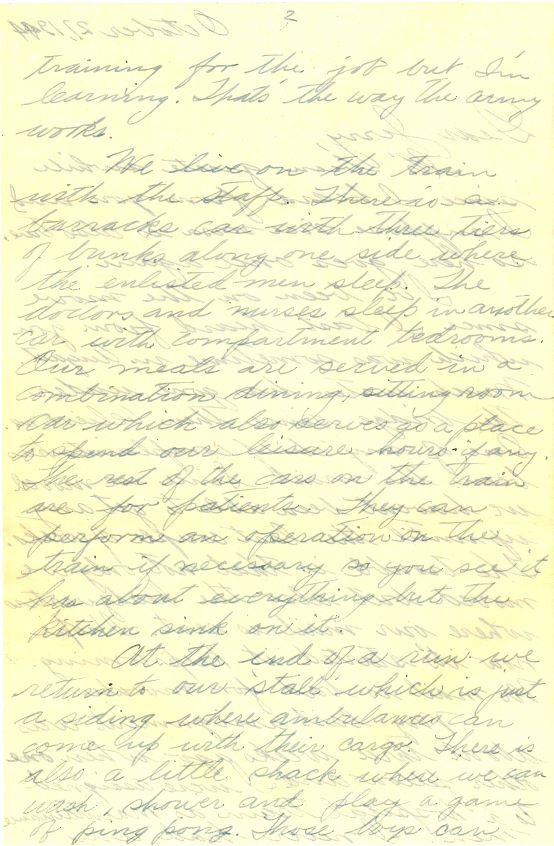 2
training for the job but I'm
learning. That's the way the army
works.
We live on the train
with the staff. There is a
barracks car with three tiers
of bunks along one side where
the enlisted men sleep. The
doctors and nurses sleep in another
car with compartment bedrooms.
Our meals are served in a
combination dining, sitting room
car which also serves as a place
to spend our leisure hours if any.
The rest of the cars on the train
are for patients. They can
perform an operation on the
train if necessary so you see it
has about everything but the
kitchen sink on it.
At the end of a run we
return to our "stall" which is just
a siding where ambulances can
come up with their cargo. There is
also a little shack where we can
wash, shower and play a game
of ping pong. Those boys can